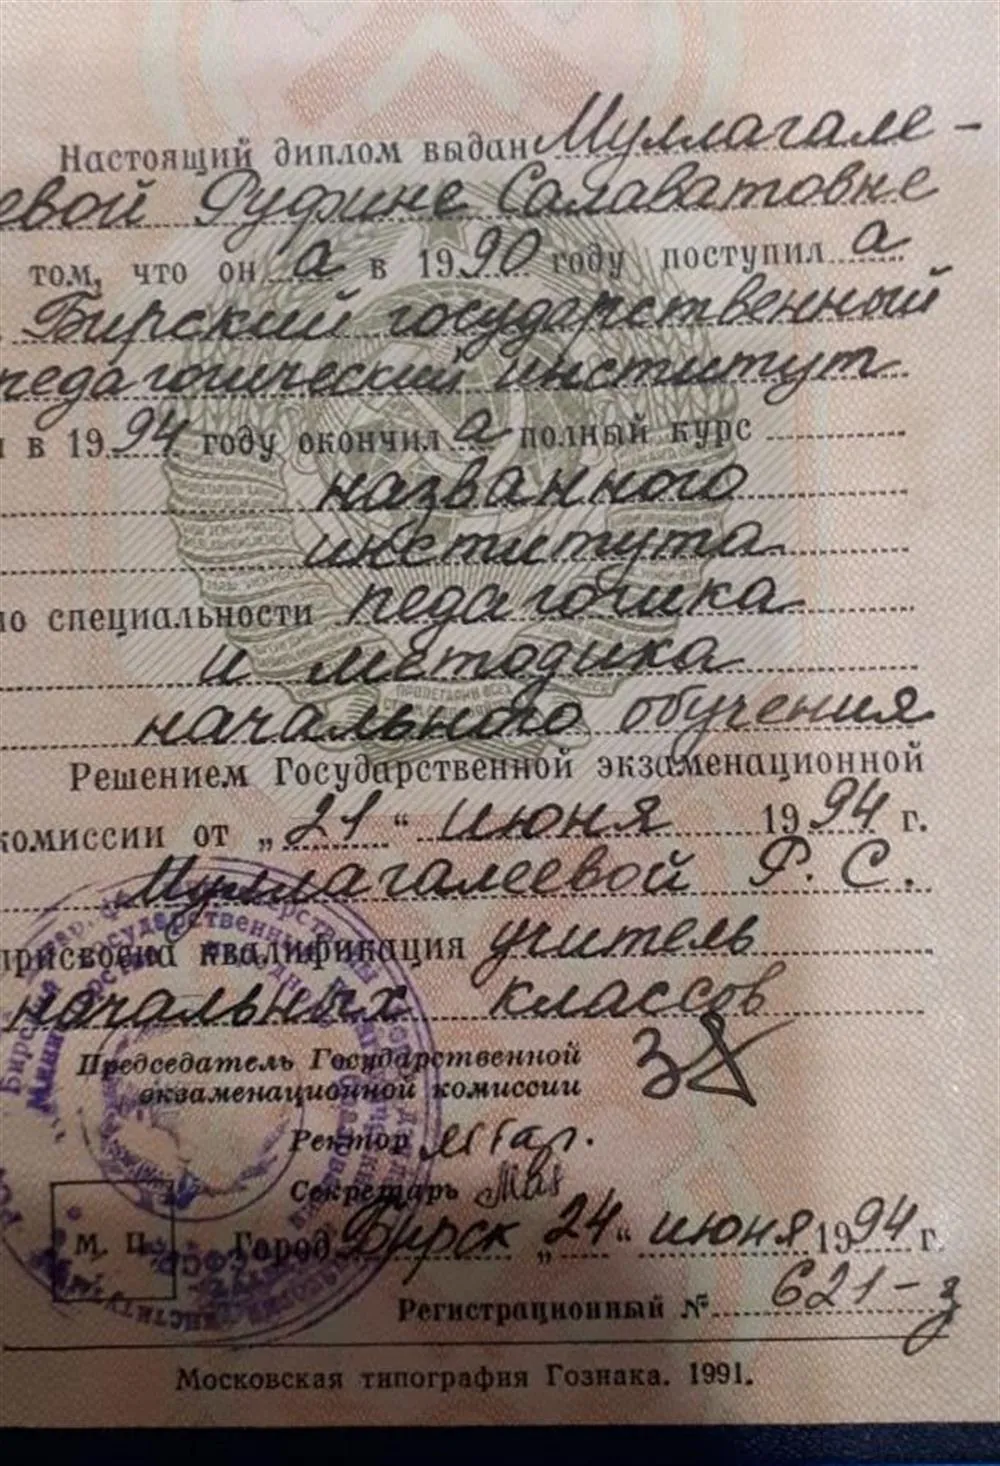 Настоящий диплом выдан Муллагале-
евой Руфине Салаватовне
том, что он а в 1990 году поступил а
Бирский государственный
педагогический институт
в 1994 году окончил а полный курс
названного
института
по специальности педагогика
и методика
начального обучения
Решением Государственной экзаменационной
комиссии от „21“ июня 1994 г.
Муллагалеевой Р. С.
присвоена квалификация учитель
начальных классов
Председатель Государственной
экзаменационной комиссии
Ректор
Секретарь
М. П. Город Бирск „24“ июня 1994 г.
Регистрационный № 621-з
Московская типография Гознака. 1991.